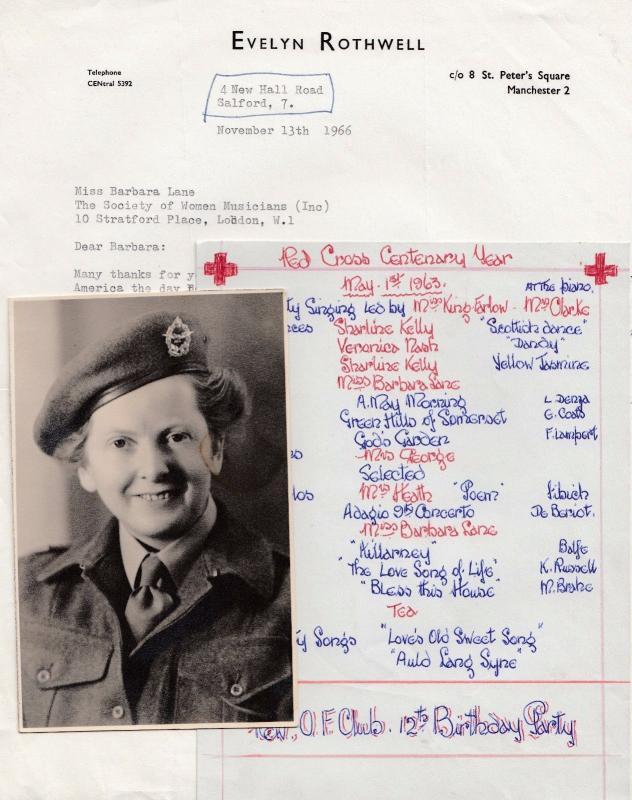 EVELYN ROTHWELL
Telephone
CENtral 5392
c/o 8 St. Peter's Square
Manchester 2
4 New Hall Road
Salford, 7.
November 13th 1966
Miss Barbara Lane
The Society of Women Musicians (Inc)
10 Stratford Place, London, W.1
Dear Barbara:
Many thanks for y
America the day
Red Cross Centenary Year
May. 1st 1963.
AT The piano.
ty Singing Led by Mrs King-Farlow. Mrs Clarke
ces Sharline Kelly "Scottish dance"
Veronica Nash "Dandy"
Sharline Kelly Yellow Jasmine
Miss Barbara Lane
A. May Morning L. Denza
Green Hills of Somerset E. Coats
God's Garden F. Lampert
Mrs George
Selected
los Mrs Heath "Poem" Fibich
Adagio 9th Concerto De Beriot.
Miss Barbara Lane
"Killarney" Balfe
"The Love Song of Life" K. Russell
"Bless this House" M. Brahe
Tea
ty Songs "Love's Old Sweet Song"
"Auld Lang Syne"
O. F. Club. 12th Birthday Party